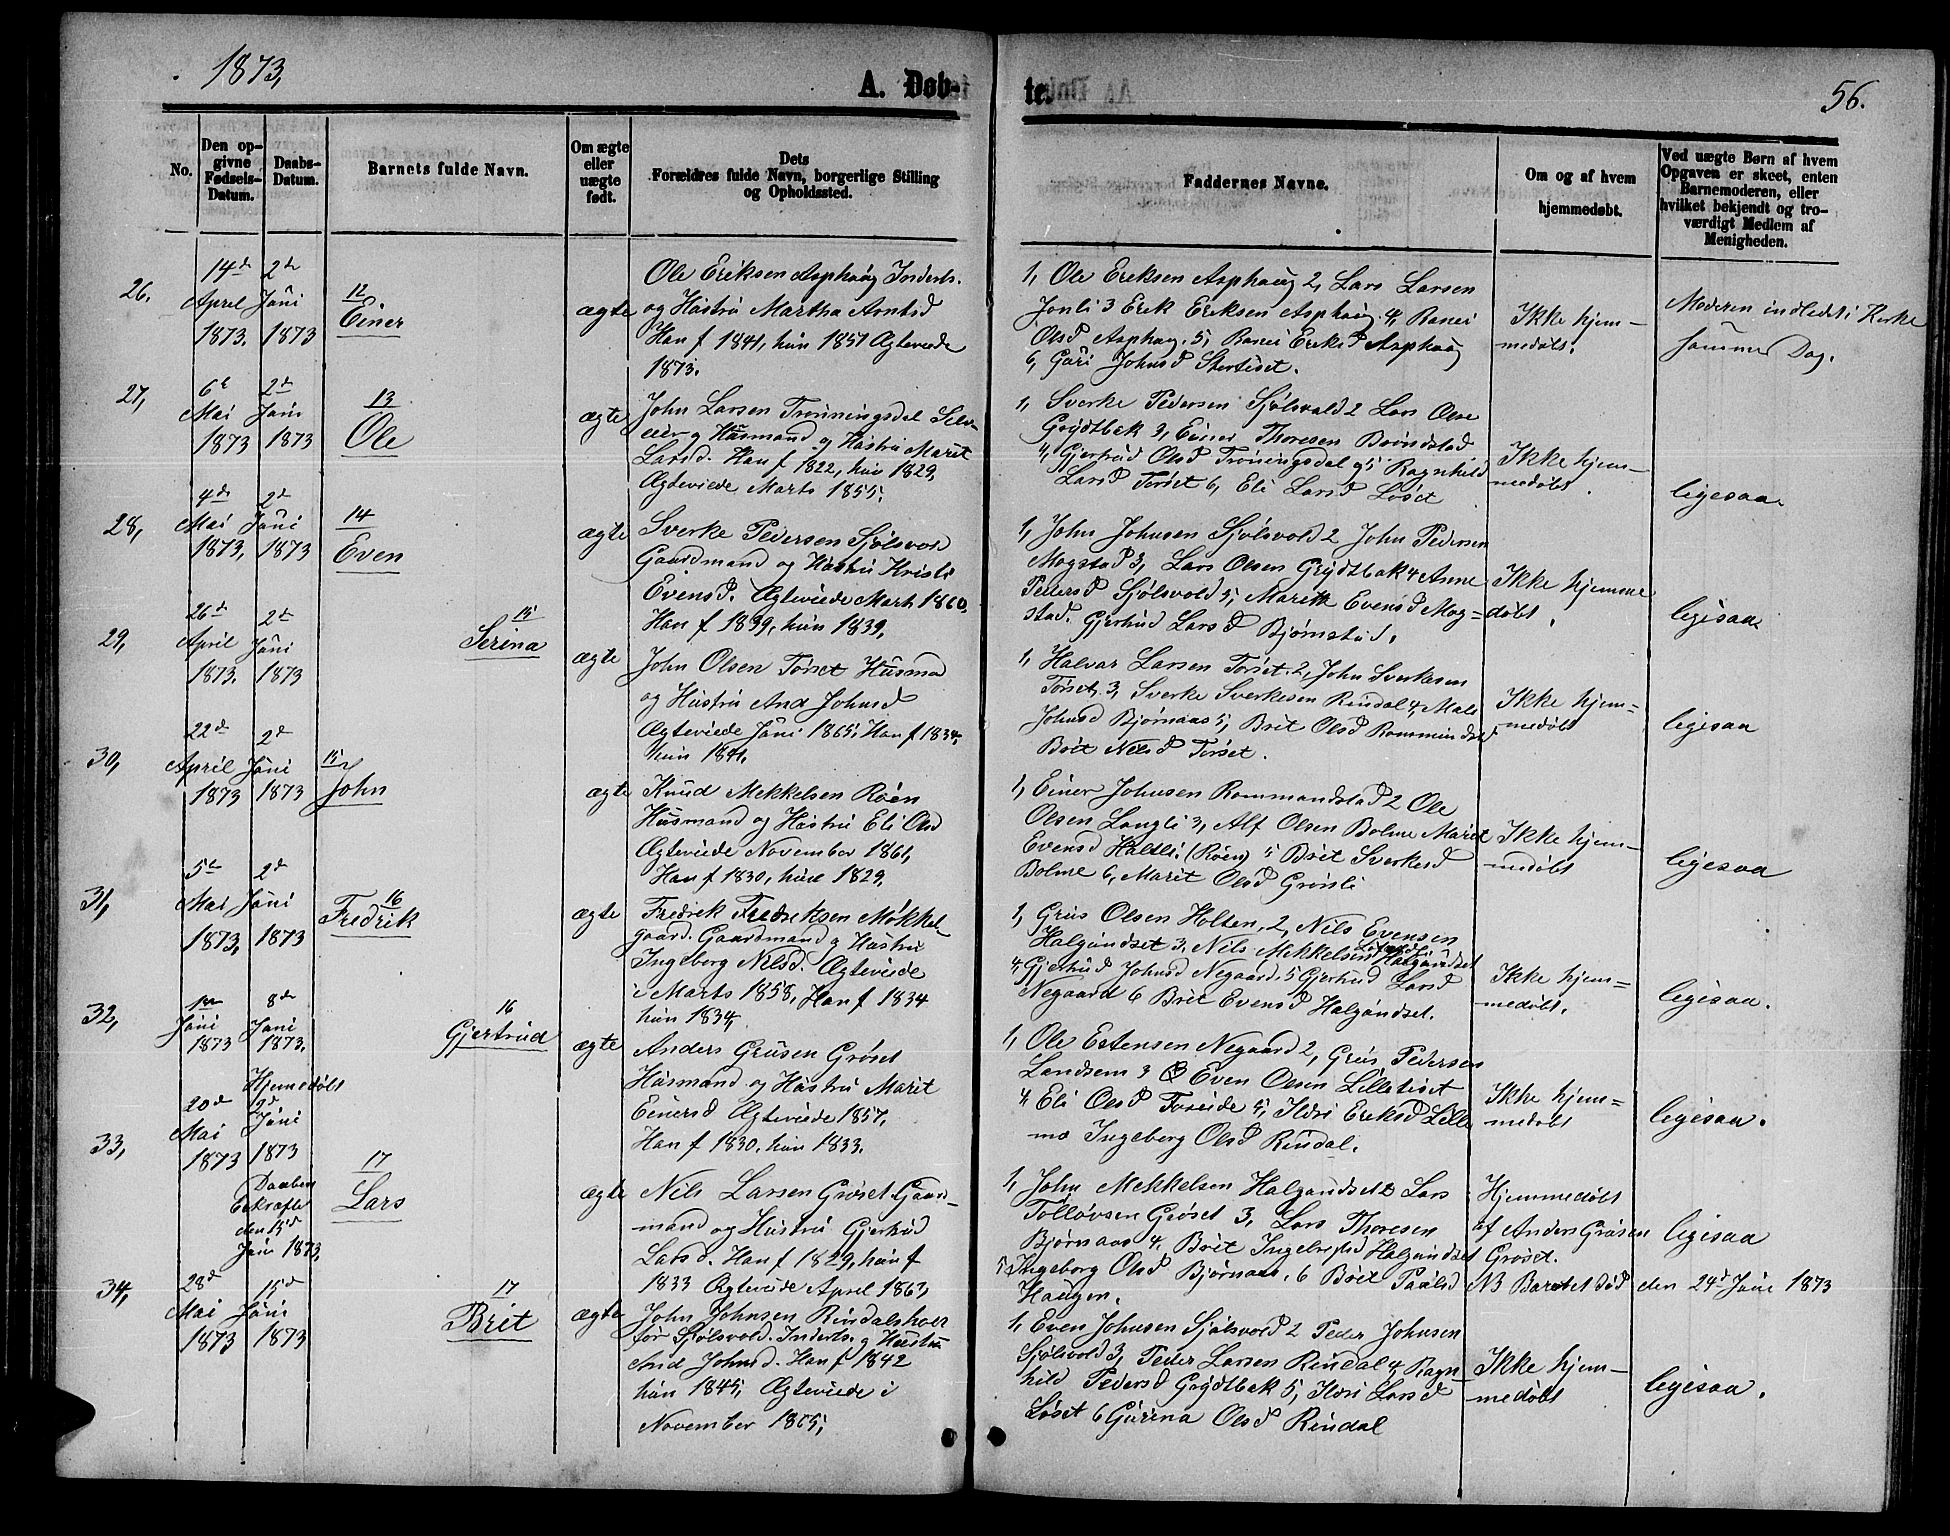 1873,
A. Døb-
te.
56.
No.
Den op-
givne
Fødsels-
Datum.
Daabs-
Datum.
Barnets fulde Navn.
Om ægte
eller
uægte
født.
Dets
Forældres fulde Navn, borgerlige Stilling
og Opholdssted.
Faddernes Navne.
Om og af hvem
hjemmedøbt.
Ved uægte Børn af hvem
Opgaven er skeet, enten
Barnemoderen, eller
hvilket bekjendt og tro-
værdigt Medlem af
Menigheden.
26.
14de
April
1873.
2de
Juni
1873
12
Einer
ægte
Ole Eriksen Asphaug Inderts.
og Hustru Martha Arntsd
Han f 1841, hun 1851 Ægteviede
1873.
1, Ole Eriksen Asphaug 2, Lars Larsen
Jonli 3 Erik Eriksen Asphaug. 4, Ranei
Olsd Asphaug. 5, Ranei Eriksd Asphaug
6, Guri Johnsd Stortiset.
Ikke hjem-
medøbt.
Moderen indledet i Kirke
samme Dag.
27,
6te
Mai
1873
2de
Juni
1873
13
Ole
ægte
John Larsen Trønningsdal Selv-
eier og Husmand og Hustru Marit
Larsd. Han f 1822, hun 1829,
Ægteviede Marts 1855,
1, Sverke Pedersen Sjølsvold 2 Lars Olse
Grytbak 3, Einer Thoresen Brøndstad
4, Gjertrud Olsd Trøningsdal 5 Ragnhild
Larsd Torset 6, Eli Larsd Løset
Ikke hjem-
medøbt
ligesaa
28,
4de
Mai
1873,
2de
Juni
1873
14
Even
ægte
Sverke Pedersen Sjølsvold
Gaardmand og Hustru Kristi
Evensd. Ægteviede Marts 1860
Han f 1839, hun 1839,
1, John Johnsen Sjølsvold 2 John Pedersen
Mogstad 3, Lars Olsen Grytbak 4 Anne
Pedersd Sjølsvold 5, Marit Evensd Mog-
stad. Gjertrud Larsd Bjørnstad.
Ikke hjemme
døbt
ligesaa
29,
26de
April
1873.
2de
Juni
1873
15
Serina
ægte
John Olsen Torset Husma
og Hustru And Johnsd
Ægteviede Juni 1865, Han f 1834,
hun 1841,
1, Halvar Larsen Torset 2, John Sverkesen
Torset 3, Sverke Sverkesen Rindal 4, Mali
Johnsd Bjørnaas 5, Brit Olsd Rommundstd
Brit Nilsd Torset.
Ikke hjem-
medøbt
ligesaa
30,
22de
April
1873
2de
Juni
1873
15
John
ægte
Knud Mekkelsen Røen
Husmand og Hustru Eli Olsd
Ægteviede November 1861,
Han f 1830, hun 1829,
1, Einer Johnsen Rommundstad 2 Ole
Olsen Langli 3, Alf Olsen Bolme Marit
Evensd Haltli (Røen) 5 Brit Sverkesd
Bolme 6, Marit Olsd Grønli
Ikke hjem-
medøbt
ligesaa
31,
5te
Mai
1873,
2de
Juni
1873
16
Fredrik
ægte
Fredrik Fredriksen Møkkel
gaard. Gaardmand og Hustru
Ingeborg Nilsd. Ægteviede
i Marts 1858, Han f 1834
hun 1834,
1, Gruis Olsen Holten, 2, Nils Evensen
Halgundset 3, Nils Mekkelsen Halgundset
4, Gjertrud Johnsd Negaard. 5 Gjertrud Larsd
Negaard 6 Brit Evensd Halgundset.
Ikke hjem-
medøbt.
ligesaa.
32,
1ste
Juni
1873
8de
Juni
1873.
16
Gjertrud
ægte
Anders Grusen Grøset
Husmand og Hustru Marit
Einersd Ægteviede 1857,
Han f 1830, hun 1833.
1, Ole Estensen Negaard 2, Gruis Pedersen
Landsem 3 Even Olsen Lilletiset
4, Eli Olsd Foreide 5, Ildri Eriksd Lille
mo Ingeborg Olsd Rindal.
Ikke hjem-
medøbt
ligesaa.
33,
20de
Mai
1873
Hjemmedøbt
9de
Juni
1873
Daaben
Bekræftet
den 15de
Juni 1873,
17
Lars
ægte
Nils Larsen Grøset. Gaard-
mand og Hustru Gjertrud
Larsd. Han f 1829, hun f
1833 Ægteviede April 1863,
1, John Mekkelsen Halgundset 2 Lars
Tolløvsen Grøset 3, Lars Thoresen
Bjørnaas 4, Brit Ingebrigtsd Halgundset
5, Ingeborg Olsd Bjørnaas. 6 Brit Paalsd
Haugen.
Hjemmedøbt
af Anders Grusen
Grøset.
NB Barnet død den 24de Juni 1873
ligesaa
34,
28de
Mai
1873
15de
Juni
1873
17
Brit
ægte
John Johnsen Rindalsholt
før Sjølsvold. Inderts. og Hustru
And Johnsd. Han f 1842
hun 1845, Ægteviede i
November 1865,
1, Even Johnsen Sjølsvold 2 Peder Johnsen
Sjølsvold 3, Peder Larsen Rindal 4, Ragn
hild Pedersd Grytbak 5, Ildri Larsd
Løset 6 Gurina Olsd Rindal
Ikke hjem-
medøbt
ligesaa.